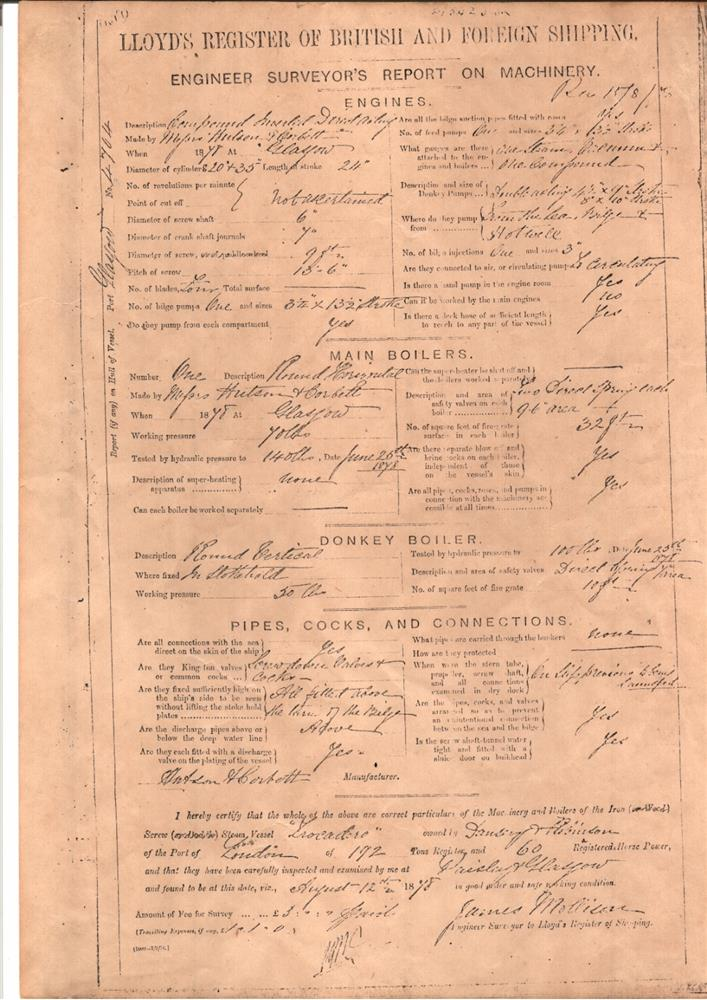 LLOYD'S REGISTER OF BRITISH AND FOREIGN SHIPPING.
ENGINEER SURVEYOR'S REPORT ON MACHINERY.
Rec 15/8/78
Port Glasgow No. 4704
Report (if any) on Hull of Vessel.
ENGINES.
Description Compound Inverted Direct Acting
Made by Messrs Hutson & Corbett
When 1878 At Glasgow
Diameter of cylinders 20" & 35" Length of stroke 24"
No. of revolutions per minute
Point of cut off not ascertained
Diameter of screw shaft 6"
Diameter of crank shaft journals 7"
Diameter of screw,
Pitch of screw 13-6"
No. of blades, Four Total surface
No. of bilge pumps One and sizes 3½" x 13½" Stroke
Do they pump from each compartment Yes
Are all the bilge suction pipes fitted with roses Yes
No. of feed pumps One and sizes 3½" x 13½" Stroke
What gauges are there attached to the engines and boilers One Steam, One Vacuum & One Compound
Description and size of Donkey Pumps Double acting
Where do they pump from From the Sea, Bilge & Hotwell
No. of bilge injections One and sizes 3"
Are they connected to air, or circulating pump To Circulating
Is there a hand pump in the engine room Yes
Can it be worked by the main engines no
Is there a deck hose of sufficient length to reach to any part of the vessel Yes
MAIN BOILERS.
Number One Description Round Horizontal
Made by Messrs Hutson & Corbett
When 1878 At Glasgow
Working pressure 70 lbs
Tested by hydraulic pressure to 140 lbs. Date June 25th 1878
Description of super-heating apparatus none
Can each boiler be worked separately
Can the super-heater be shut off and the boilers worked separately
Description and area of safety valves on each boiler Two Direct Spring each 9.6" area
No. of square feet of fire grate surface in each boiler 32 ft
Are there separate blow off and brine cocks on each boiler, independent of those on the vessel's skin Yes
Are all pipes, cocks, roses, and pumps in connection with the machinery accessible at all times Yes
DONKEY BOILER.
Description Round Vertical
Where fixed In Stokehold
Working pressure 50 lbs
Tested by hydraulic pressure to 100 lbs. Date June 25th 1878
Description and area of safety valves Direct Spring area
No. of square feet of fire grate 10 ft
PIPES, COCKS, AND CONNECTIONS.
Are all connections with the sea direct on the skin of the ship Yes
Are they Kingston valves or common cocks Screw down Valves & Cocks
Are they fixed sufficiently high on the ship's side to be seen without lifting the stoke hold plates All fitted above the turn of the Bilge
Are the discharge pipes above or below the deep water line Above
Are they each fitted with a discharge valve on the plating of the vessel Yes
What pipes are carried through the bunkers none
How are they protected
When were the stern tube, propeller, screw shaft, and all connections examined in dry dock On Slip previous to being Launched
Are the pipes, cocks, and valves arranged so as to prevent an unintentional connection between the sea and the bilge Yes
Is the screw shaft tunnel water tight and fitted with a sluice door on bulkhead Yes
Hutson & Corbett Manufacturer.
I hereby certify that the whole of the above are correct particulars of the Machinery and Boilers of the Iron (or Wood)
Screw (or Paddle) Steam Vessel "Trocadero" owned by & Robinson
of the Port of London of 192 Tons Register, and 60 Registered Horse Power,
and that they have been carefully inspected and examined by me at Paisley & Glasgow
and found to be at this date, viz., August 12th 1878 in good order and safe working condition.
Amount of Fee for Survey £3 : " : " Paid
(Travelling Expenses, if any, £1.1.0.)
James Mollison
Engineer Surveyor to Lloyd's Register of Shipping.